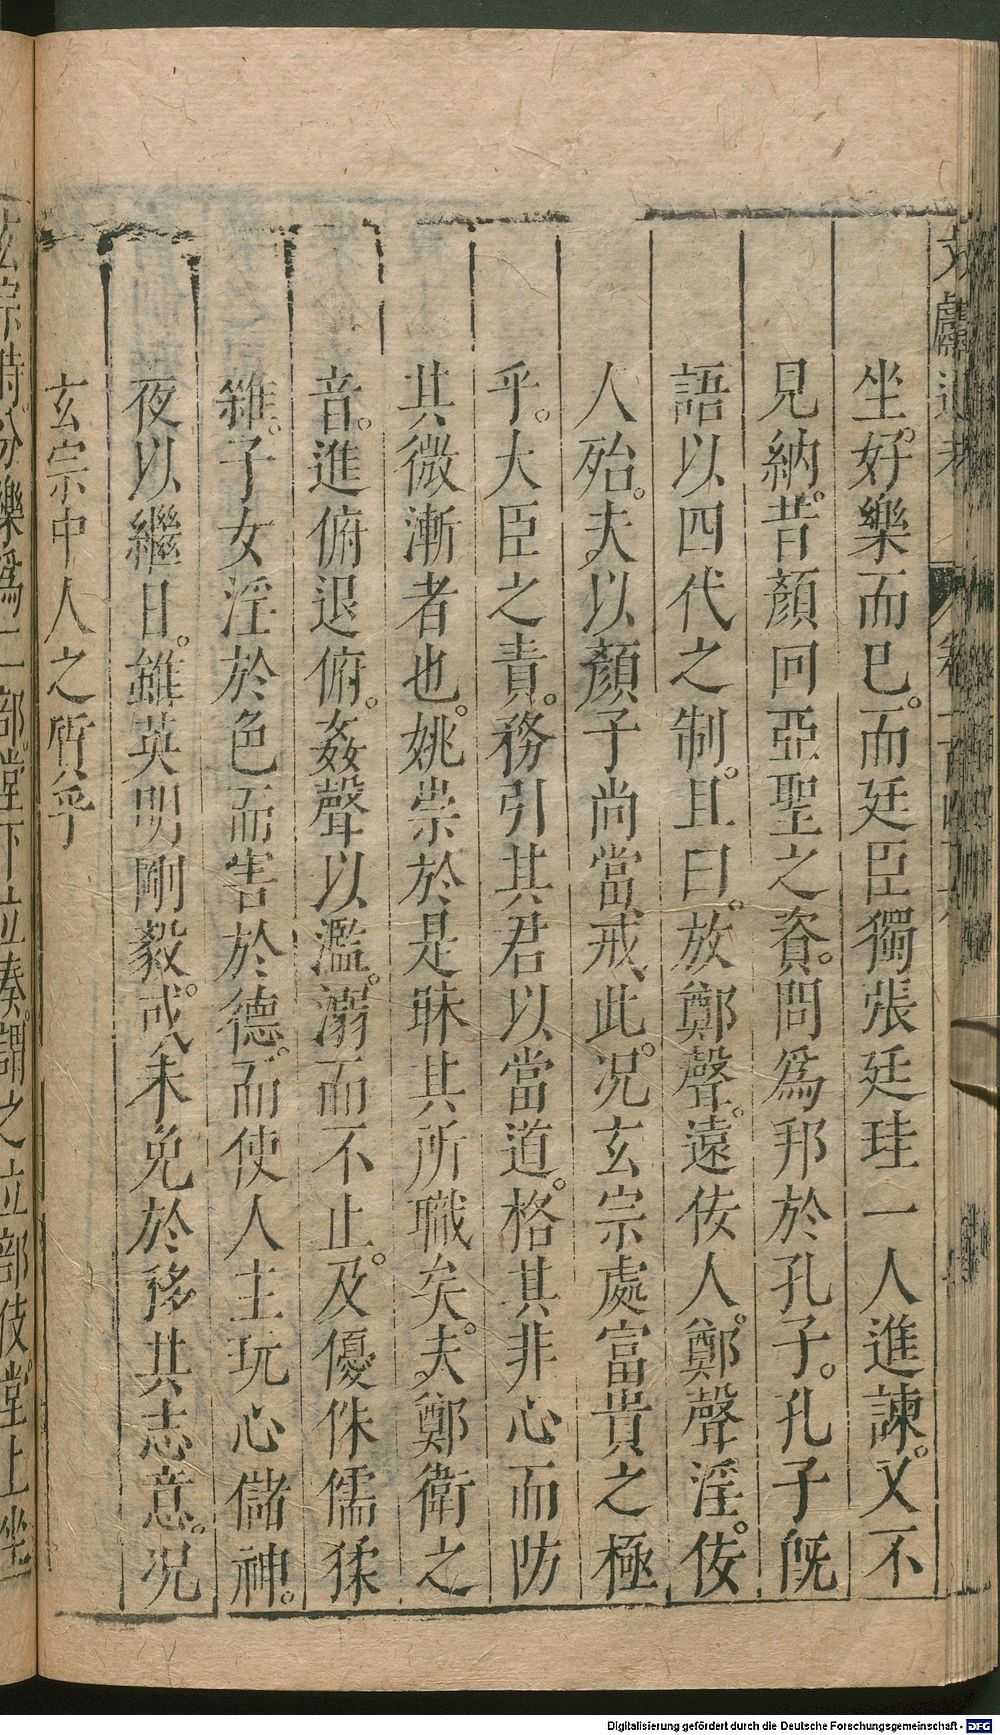 坐。好樂而已。而廷臣獨張廷珪一人進諫。又不
見納。昔顏回亞聖之資。問爲邦於孔子。孔子旣
語以四代之制。且曰。放鄭聲。遠佞人。鄭聲淫。佞
人殆。夫以顏子尚當戒此。况玄宗處富貴之極
乎。大臣之責。務引其君以當道。格其非心而防
其微漸者也。姚崇於是昧其所職矣。夫鄭衛之
音。進俯退俯。姦聲以濫。溺而不止。及優侏儒猱
雜。子女淫於色而害於德。而使人主玩心儲神。
夜以繼日。雖英明剛毅。或未免於移其志意。况
玄宗中人之質乎
玄宗時。分樂爲二部。堂下立奏。謂之立部伎。堂上坐
Digitalisierung gefördert durch die Deutsche Forschungsgemeinschaft - DFG